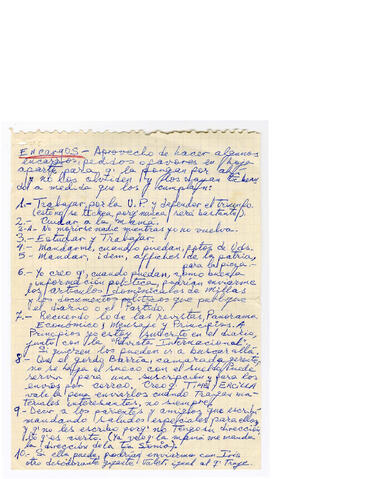 ENCARGOS.- Aprovecho de hacer algunos
encargos, pedidos o favores en hoja
aparte para q' la pongan por ahí
y no los olviden y los vayan
do a medida que los cumplan:
1.- Trabajar por la U.P. y defender el triunfo
(esto no se toca porq' nunca será bastante).
2.- Cuidar a la mamá.
2-A- No morirse nadie mientras yo no vuelva.
3.- Estudiar y Trabajar.
4.- Mandarme, cuando puedan, fotos de Uds.
5.- Mandar, idem, afiches de la patria,
para la pieza.
6.- Yo creo q', cuando puedan, como buena
información política, podrían enviarme
los artículos dominicales de Millas
y los documentos políticos que publique
el diario o el Partido.
7.- Recuerdo lo de las revistas, Panorama
Económico, Mensaje y Principios. A
Principios yo estoy suscrito en el diario,
junto con la "Revista Internacional".
Si quieren los pueden ir a buscar allá.
8.- Que el gordo Barría, camarada gerente,
no se haga el sueco con el sueldo. Puede
servir para una suscripción y para los
envíos por correo. Creo q'
vale la pena enviarlos cuando traigan ma-
teriales interesantes, no siempre.
9.- Decir a los parientes y amigos que escribí
mandando saludos especiales para ellos
y q' no les escribo porq' no tengo su dirección
lo q' es cierto. (Ya veo q' la mamá me manda
la dirección de la tía Sonia).
10.- Si ella puede, podrían enviarme con Inés
otro desodorante igual al q' traje.